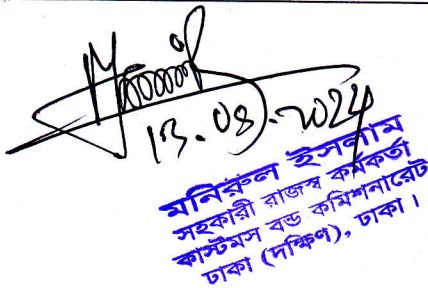 13.08.2024
মনিরুল ইসলাম
সহকারী রাজস্ব কর্মকর্তা
কাস্টমস বন্ড কমিশনারেট
ঢাকা (দক্ষিণ), ঢাকা।